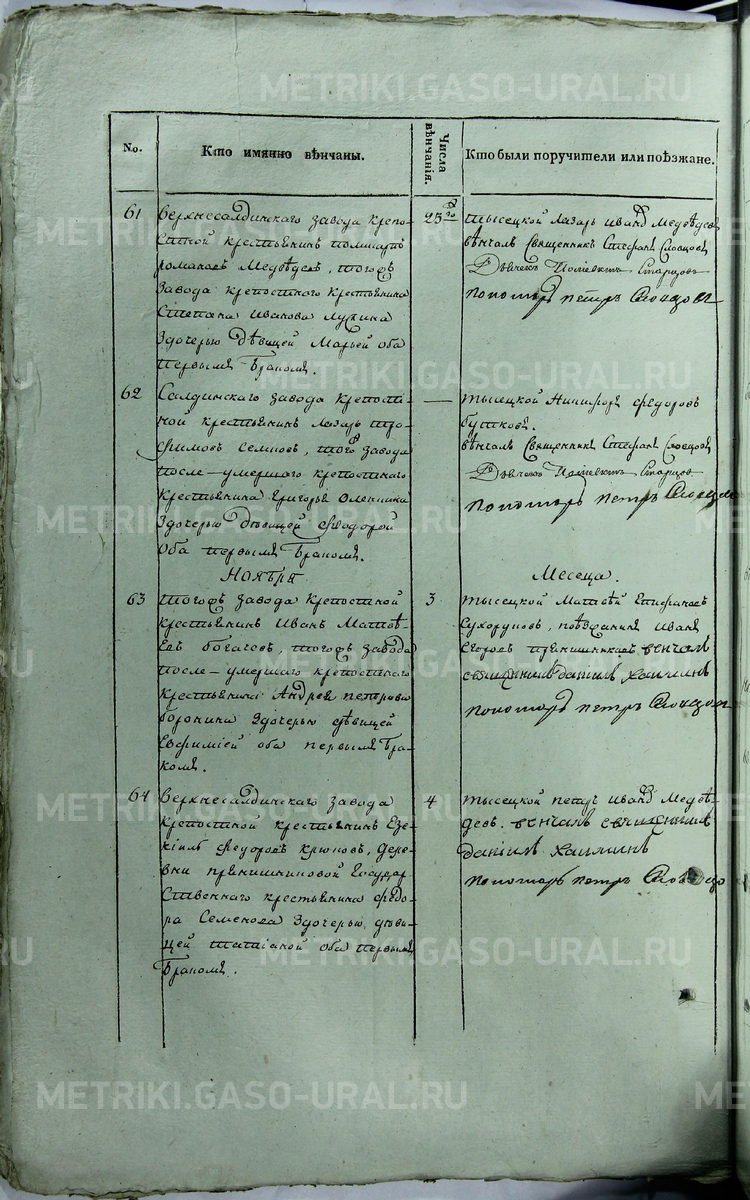 No.
Кто имянно вѣнчаны.
Числа вѣнчанія.
Кто были поручители или поѣзжане.
61
Верхнесалдинскаго завода крепо-
стной крестьянинъ
романовъ Медвѣдевъ, тогожъ
завода крепостнаго крестьянина
Степана Иванова Лукина
здочерью дѣвицей Марьей оба
первымъ бракомъ.
25го
тысецкой Лазарь Иванов Медвѣдев
вѣнчалъ Священникъ Стефанъ Словцовъ
Дьячекъ Старцовъ
пономарь петръ Словцовъ
62
Салдинскаго завода крепост-
ной крестьянинъ Лазарь тро-
фимовъ, того завода
после-умершаго крепостнаго
крестьянина Григорья Оленкина
здочерью дѣвицей Федорой
оба первымъ бракомъ.
—
тысецкой Никифоръ Федоровъ
бутковъ.
вѣнчалъ Священникъ Стефанъ Словцовъ
Дьячекъ Старцовъ
пономарь петръ Словцовъ
Ноября
Месеца.
63
тогожъ завода крепостной
крестьянинъ Иванъ Матвѣ-
евъ богачовъ, тогожъ завода
после-умершаго крепостнаго
крестьянина Андрея петрова
воронина здочерью дѣвицей
Евфимией оба первымъ бра-
комъ.
3
тысецкой Матвѣй Епифановъ
Сухоруковъ, поѣзжанинъ Иванъ
Егоровъ прянишниковъ венчалъ
священникъ данилъ
пономарь петръ Словцовъ
64
Верхнесалдинскаго завода
крепостной крестьянинъ Езе-
кіиль Федоровъ крюковъ, дере-
вни прянишниковой Государ-
ственнаго крестьянина Федо-
ра Семенова здочерью дѣви-
цей татіаной оба первымъ
бракомъ.
4
тысецкой петръ Иванов Медвѣ-
девъ. венчалъ священникъ
данилъ
пономарь петръ Словцо
METRIKI.GASO-URAL.RU